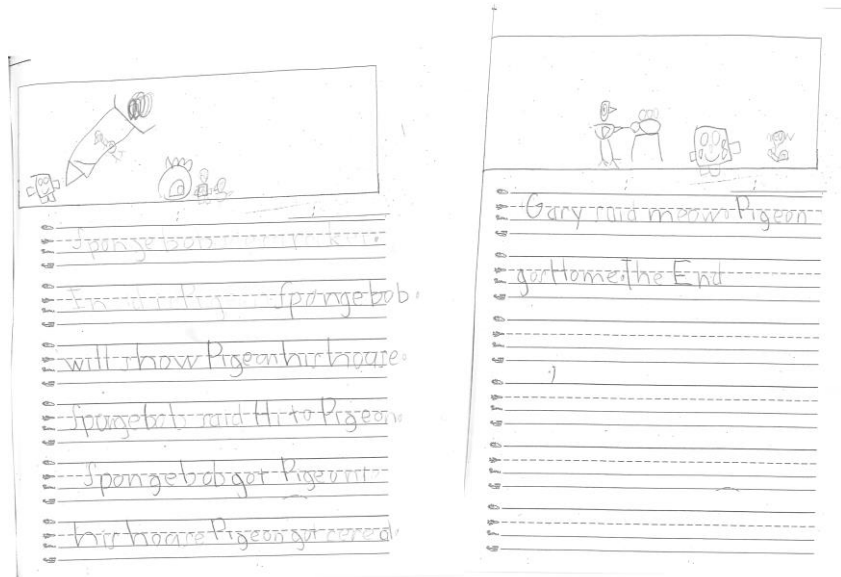 Spongebob
Spongebob.
will show Pigeon his house.
Spongebob said Hi to Pigeon
Spongebob got Pigeon to
his house Pigeon got cereal.
Gary said meow. Pigeon
got Home. The End